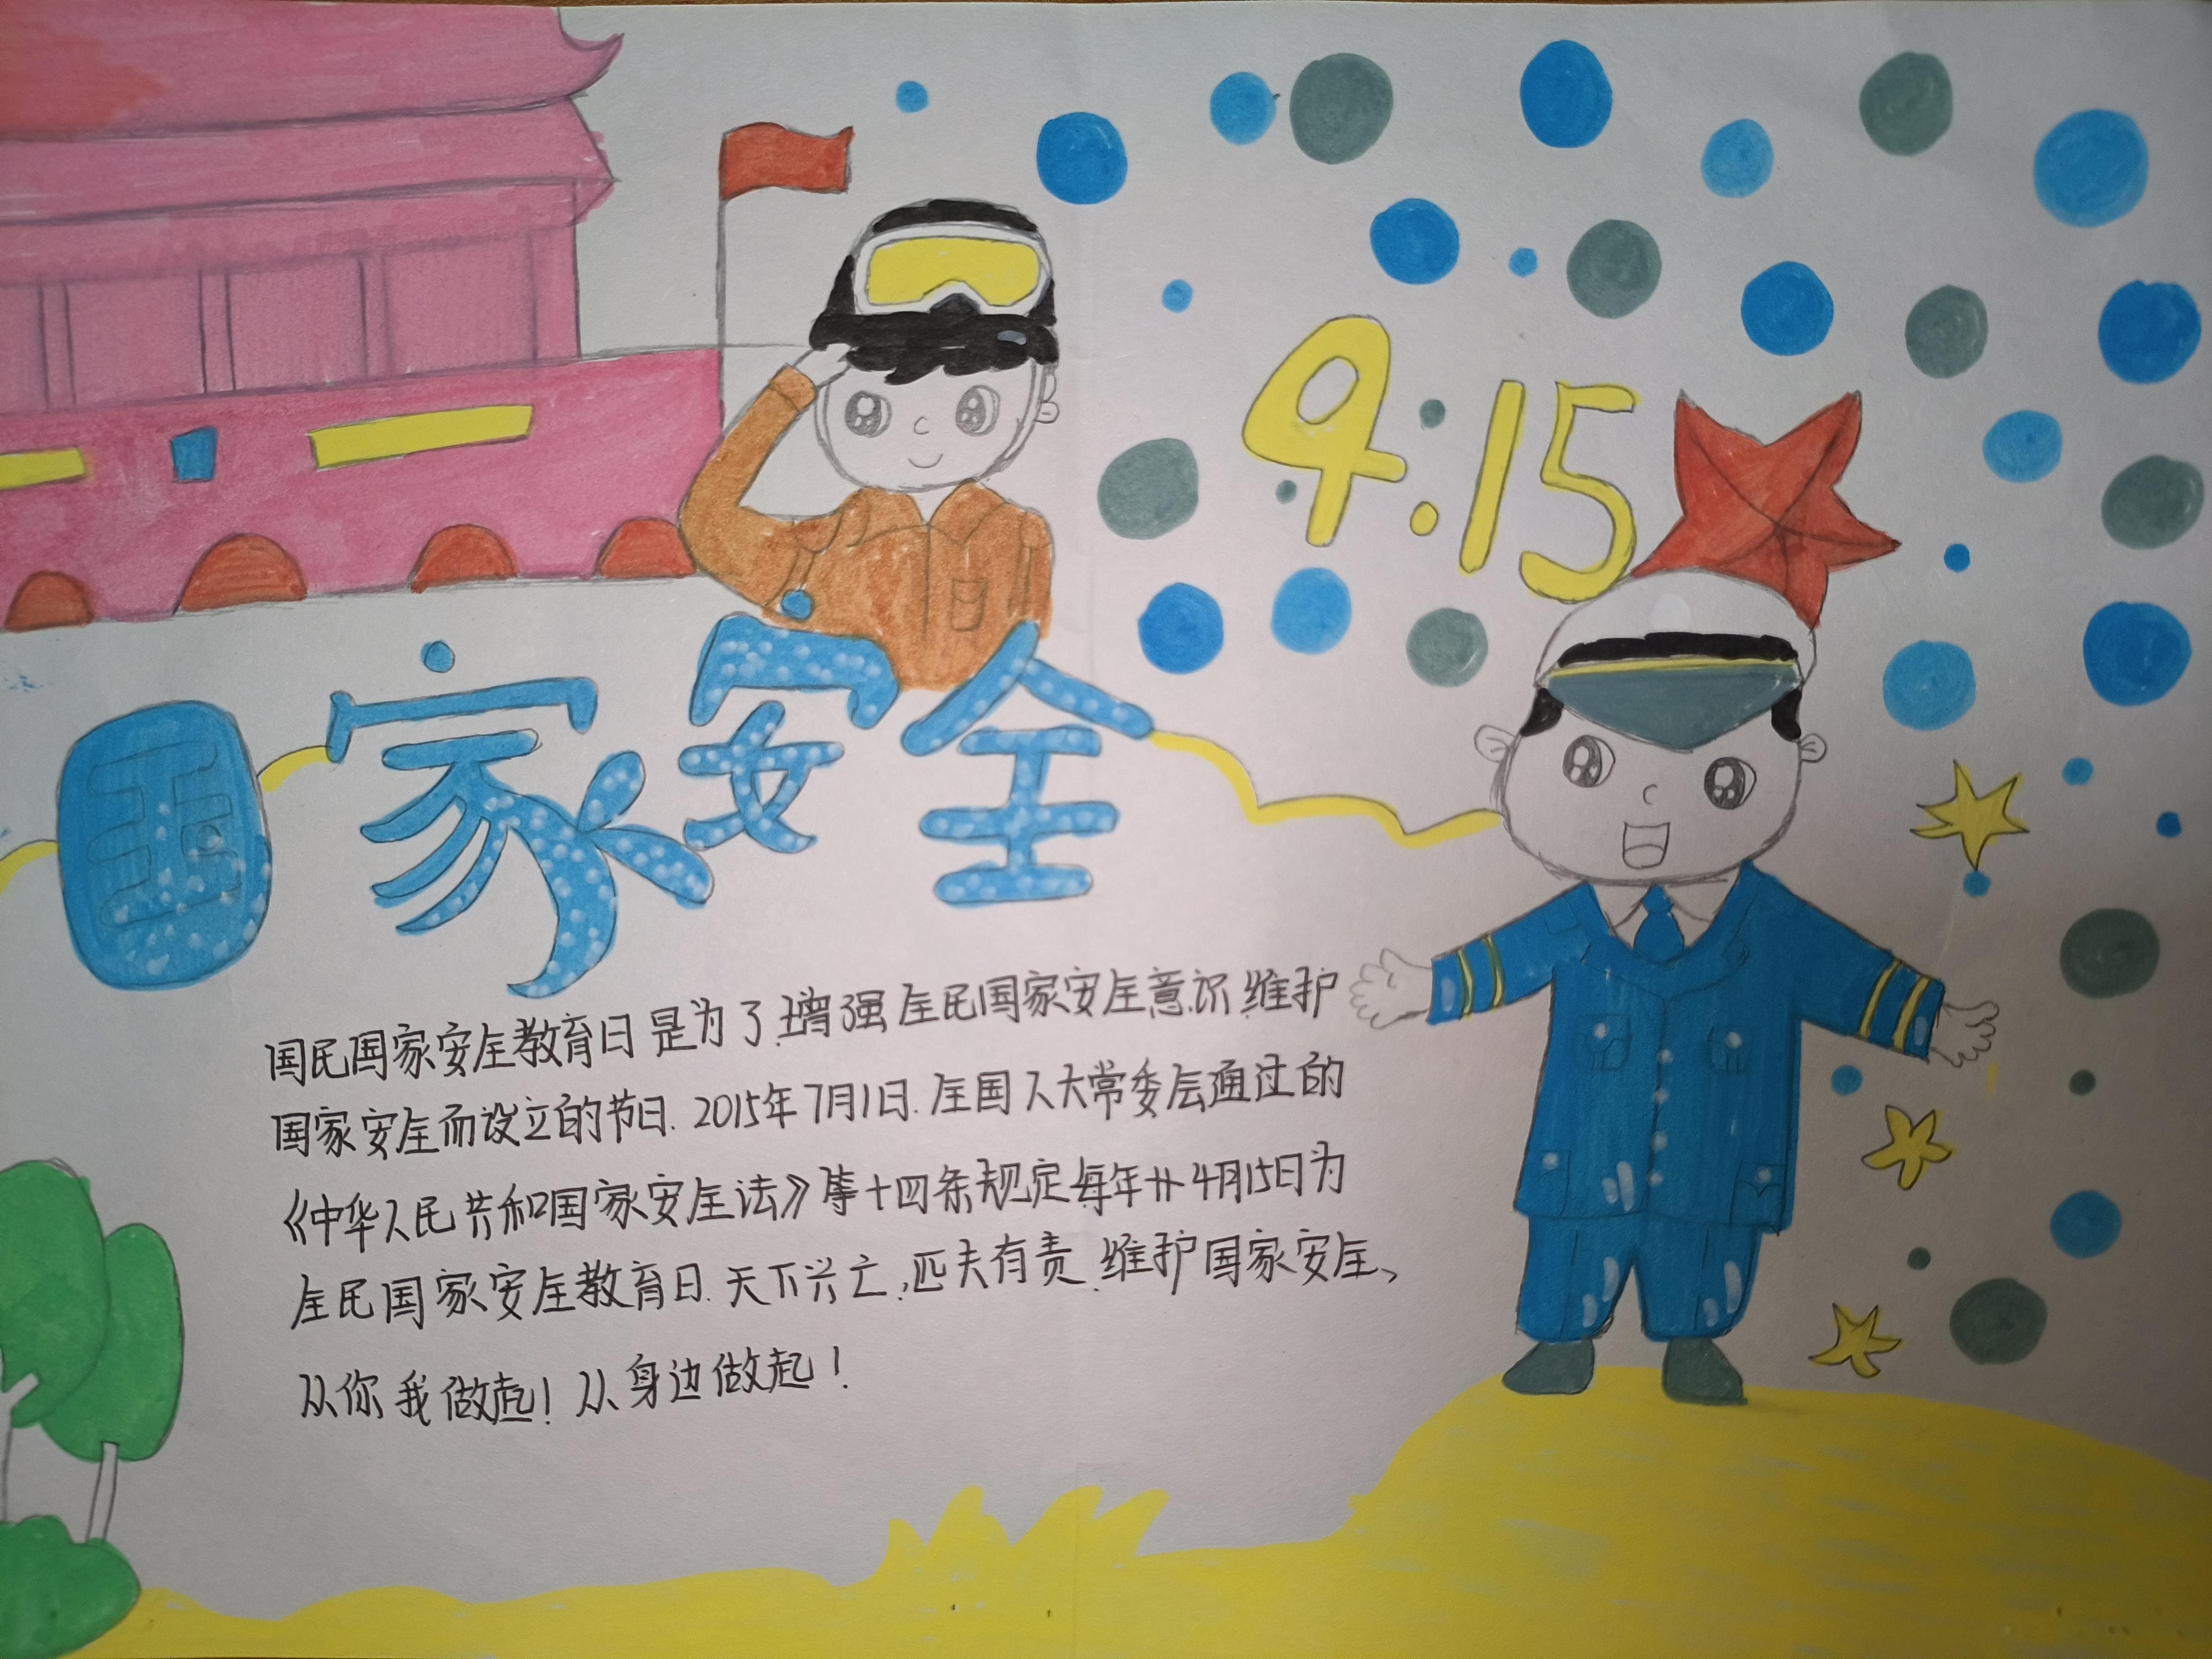 4.15
国家安全
国民国家安全教育日是为了增强全民国家安全意识.维护
国家安全而设立的节日.2015年7月1日.全国人大常委会通过的
《中华人民共和国家安全法》第十四条规定每年4月15日为
全民国家安全教育日.天下兴亡,匹夫有责.维护国家安全、
从你我做起!从身边做起!